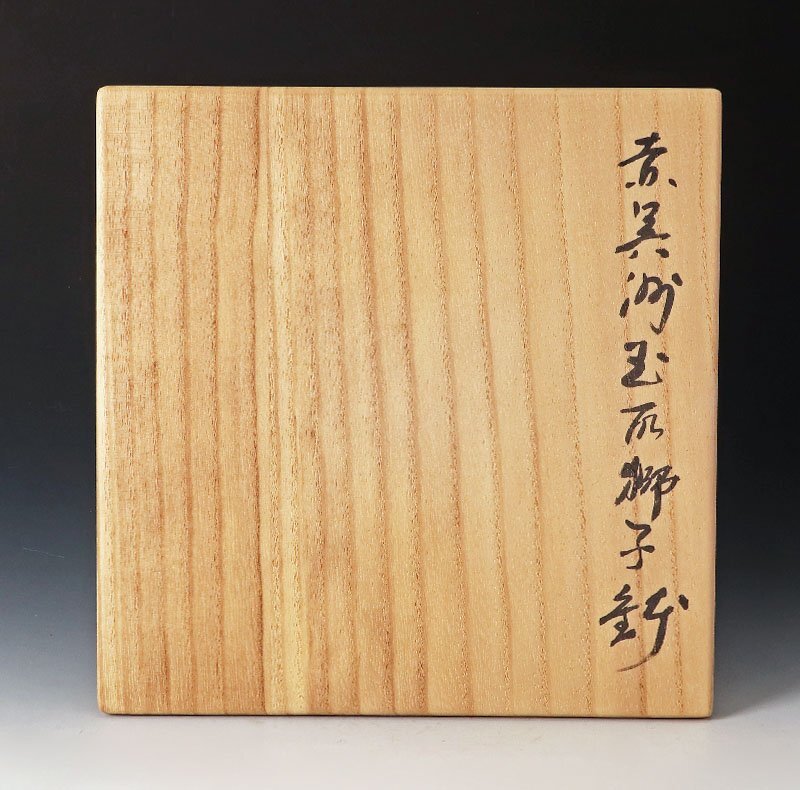 赤呉洲玉取獅子鉢